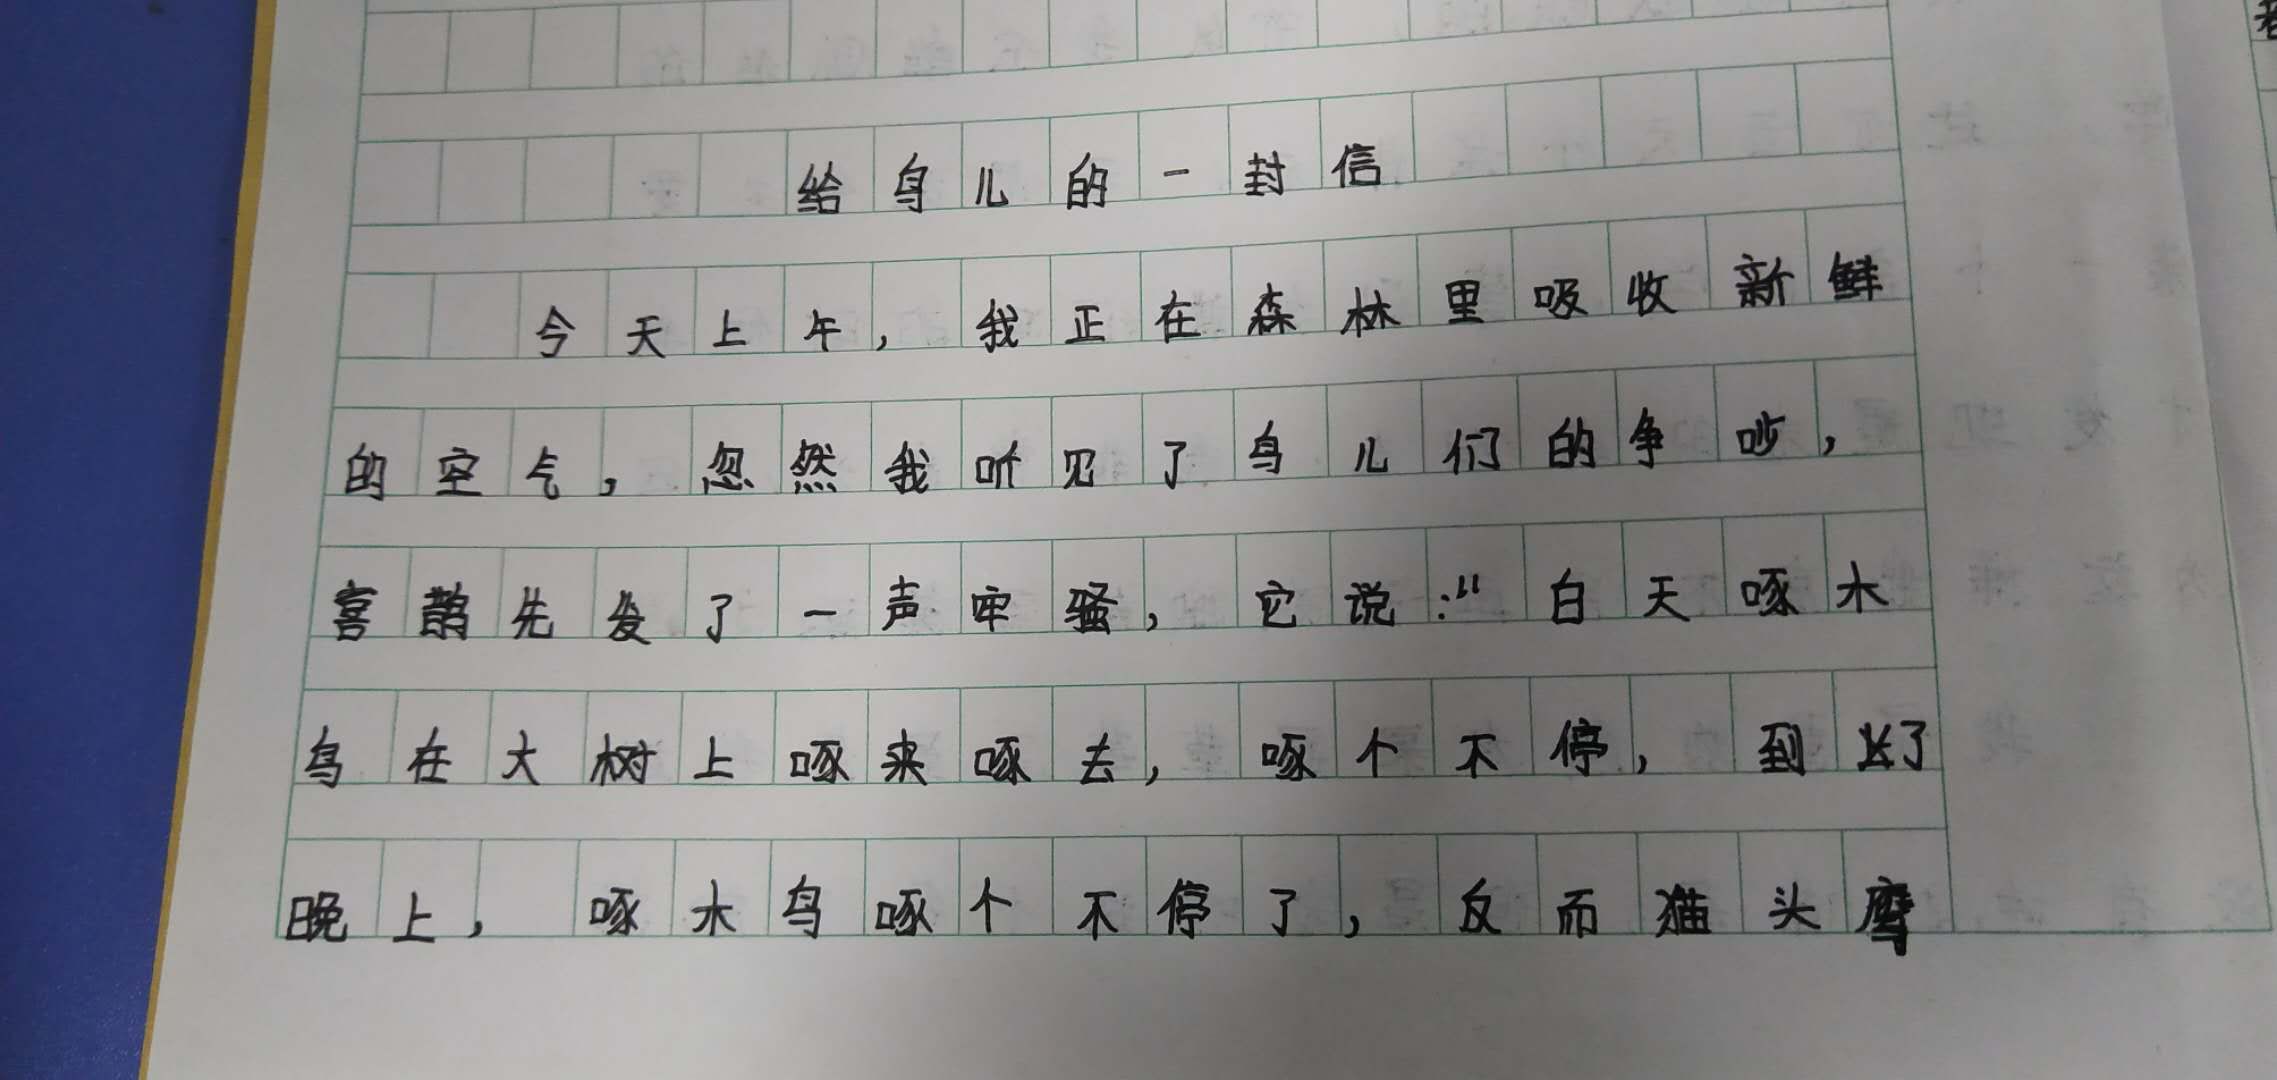 给鸟儿的一封信
今天上午，我正在森林里吸收新鲜
的空气，忽然我听见了鸟儿们的争吵，
喜鹊先发了一声牢骚，它说：“白天啄木
鸟在大树上啄来啄去，啄个不停，到了
晚上，啄木鸟啄个不停了，反而猫头鹰